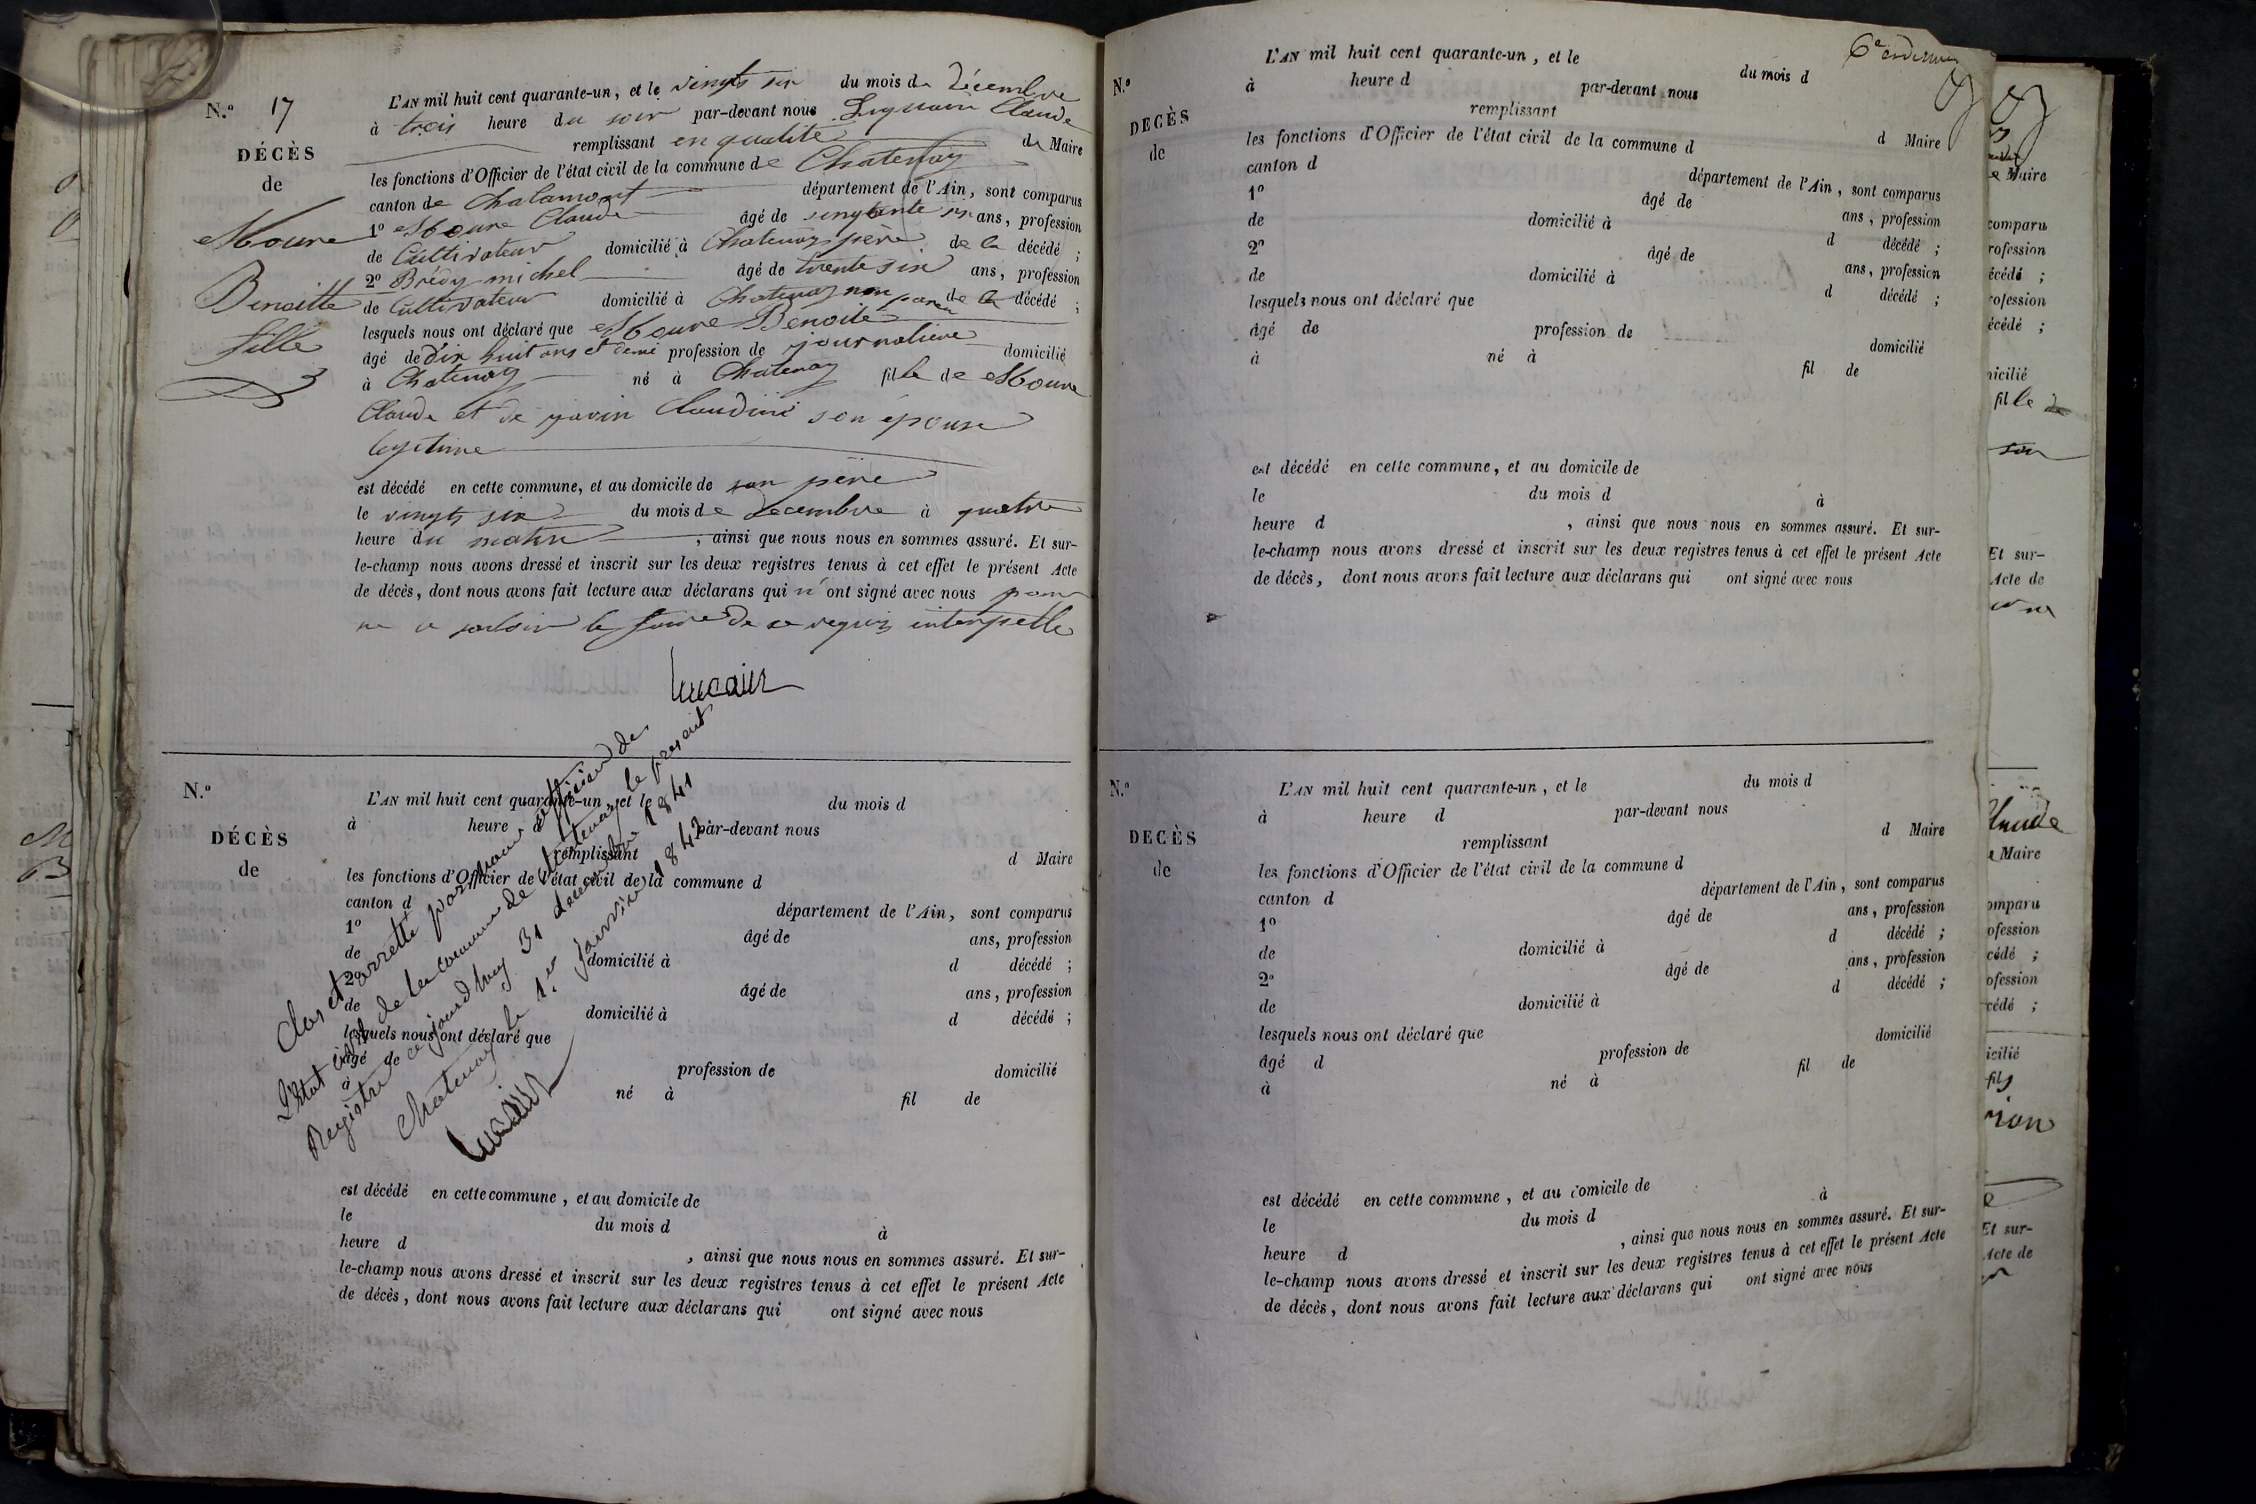 N.o 17
DÉCÈS
de
Moure
Benoitte
fille
L'AN mil huit cent quarante-un, et le vingts six du mois de Décembre
à trois heure du soir par-devant nous Claude
remplissant en qualité de Maire
les fonctions d'Officier de l'état civil de la commune de Chatenay
canton de Chalamont département de l'Ain, sont comparus
1o Moure Claude âgé de ans, profession
de Cultivateur domicilié à Chatenay père de la décédé ;
2o Brédy michel âgé de trente six ans, profession
de Cultivateur domicilié à Chatenay non paren de la décédé ;
lesquels nous ont déclaré que Moure Benoite
âgé de dix huit ans et demi profession de journaliere domicilié
à Chatenay né à Chatenay fille de Moure
Claude et de Claudine son épouse
legitime
est décédé en cette commune, et au domicile de son père
le vingts six du mois de decembre à quatre
heure du matin , ainsi que nous nous en sommes assuré. Et sur-
le-champ nous avons dressé et inscrit sur les deux registres tenus à cet effet le présent Acte
de décès, dont nous avons fait lecture aux déclarans qui n' ont signé avec nous pour
ne le savoir le faire de ce requis interpelle
Luquain
N.o
DÉCÈS
de
L'AN mil huit cent quarante-un, et le du mois d
à heure d par-devant nous
remplissant d Maire
les fonctions d'Officier de l'état civil de la commune d
canton d
département de l'Ain, sont comparus
1o âgé de ans, profession
de domicilié à d décédé ;
2o âgé de ans, profession
de domicilié à d décédé ;
lesquels nous ont déclaré que
âgé de profession de domicilié
à né à fil de
Clos et arretté par nous officier de
L'Etat civil de la commune de Chatenay le present
Registre ce jourd'huy 31 decembre 1841
Chatenay le 1er Janvier 1842
Luquain
est décédé en cette commune, et au domicile de
le du mois d à
heure d , ainsi que nous nous en sommes assuré. Et sur-
le-champ nous avons dressé et inscrit sur les deux registres tenus à cet effet le présent Acte
de décès, dont nous avons fait lecture aux déclarans qui ont signé avec nous
N.o
DÉCÈS
de
L'AN mil huit cent quarante-un, et le du mois d
à heure d par-devant nous
remplissant d Maire
les fonctions d'Officier de l'état civil de la commune d
canton d département de l'Ain, sont comparus
1o âgé de ans, profession
de domicilié à d décédé ;
2o âgé de ans, profession
de domicilié à d décédé ;
lesquels nous ont déclaré que
âgé de profession de domicilié
à né à fil de
est décédé en cette commune, et au domicile de
le du mois d à
heure d , ainsi que nous nous en sommes assuré. Et sur-
le-champ nous avons dressé et inscrit sur les deux registres tenus à cet effet le présent Acte
de décès, dont nous avons fait lecture aux déclarans qui ont signé avec nous
N.o
DÉCÈS
de
L'AN mil huit cent quarante-un, et le du mois d
à heure d par-devant nous
remplissant d Maire
les fonctions d'Officier de l'état civil de la commune d
canton d département de l'Ain, sont comparus
1o âgé de ans, profession
de domicilié à d décédé ;
2o âgé de ans, profession
de domicilié à d décédé ;
lesquels nous ont déclaré que
âgé d profession de domicilié
à né à fil de
est décédé en cette commune, et au domicile de
le du mois d à
heure d , ainsi que nous nous en sommes assuré. Et sur-
le-champ nous avons dressé et inscrit sur les deux registres tenus à cet effet le présent Acte
de décès, dont nous avons fait lecture aux déclarans qui ont signé avec nous